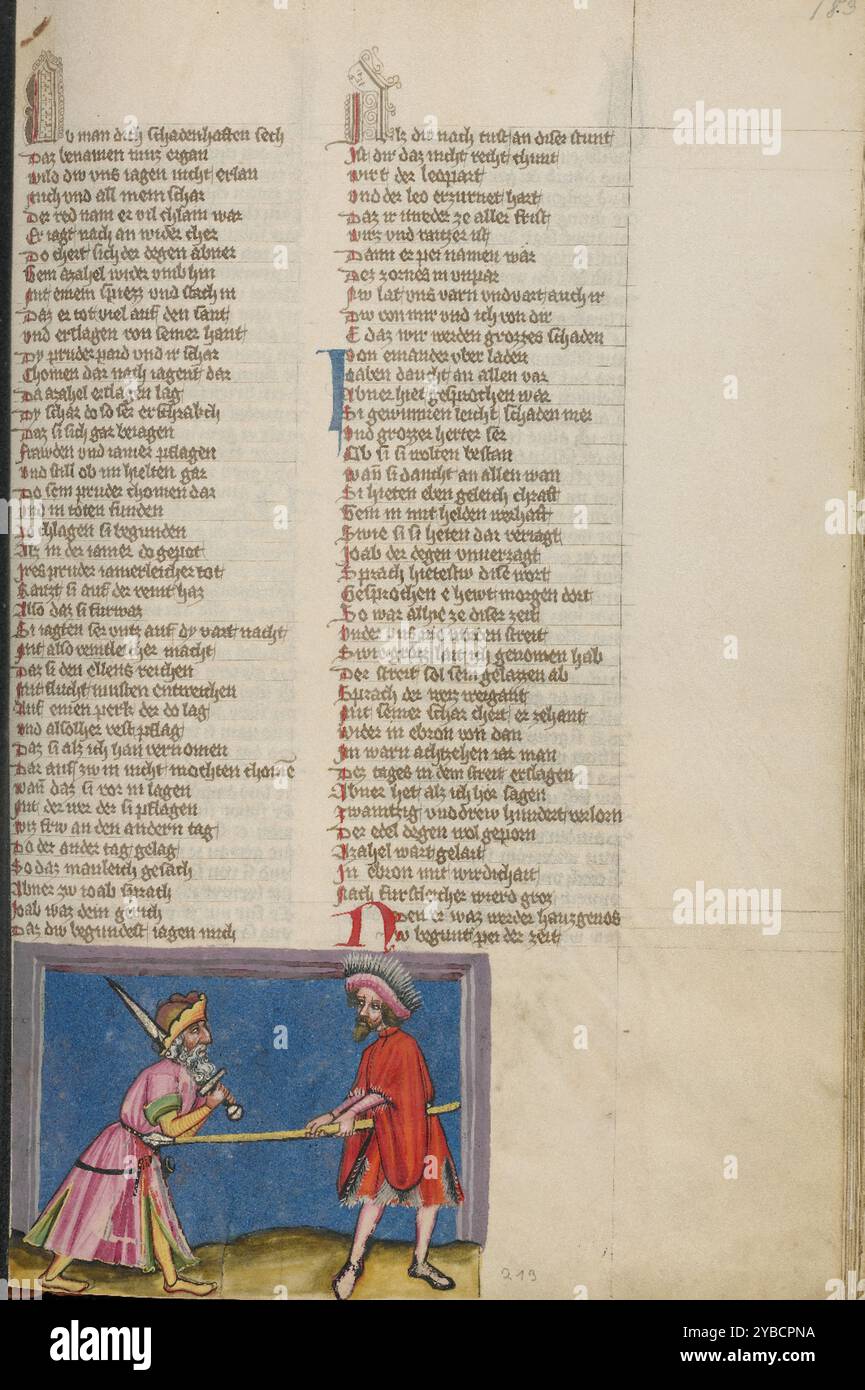 183
Nv man dich schadenhaften sech
Daz benamen muz ergan
Wild dw vns iagen nicht erlan
Mich vnd all mein schar
Der red nam er vil chlain war
Er iagt nach an wider cher
Do chert sich der degen abner
Gem azahel wider vmb hin
Mit einem spiezz vnd stach in
Daz er tot viel auf den sant
vnd erslagen von seiner hant
Dy pruder paid vnd ir schar
Chomen dar nach iagent dar
Da azahel erslagen lag
Dy schar do so ser erschrakch
Daz si sich gar bewagen
Frawden vnd iamer pflagen
vnd still ob im hielten gar
Do sein pruder chomen dar
vnd in toten funden
chlagen si begunden
Alz in der iamer do gepot
Ires pruder iamerleicher tot
Raitzt si auf der veint haz
Also daz si furwaz
Si iagten ser vntz auf dy vart nacht
Mit also veintleicher macht
Daz si den ellens reichen
Mit flucht musten entweichen
Auf einen perk der do lag
vnd alsolher vest pflag
Daz si alz ich han vernomen
Dar auf zw in nicht mochten chomen
wan daz si vor in lagen
Mit der wer der si pflagen
vnz frw an den andern tag
Do der ander tag gelag
So daz manleich gesach
Abner zw ioab sprach
Joab waz dem geleich
Daz dw begundest iagen mich
Alz dw noch tust an diser stunt
Ist dir daz nicht recht chunt
wirt der leopart
vnd der leo erzurnet hart
Daz ir itweder ze aller frist
wirz vnd raizzer ist
Dann er pei namen war
Dez zornes in vnpar
Nw lat vns varn vnd vart auch ir
Dw von mir vnd ich von dir
E daz wir werden grozzes schaden
von einander vber laden
Joaben daucht an allen var
Abner hiet gesprochen war
Si gewunnen leicht schaden mer
vnd grozzer herter ser
Ob si si wolten bestan
wan si daucht an allen wan
Si hieten eben geleich chraft
Gein in mit helden werhaft
Swie si si heten dar veriagt
Joab der degen vnuerzagt
Sprach hietestw dise wort
Gesprochen e hewt morgen dort
So war allhie ze diser zeit
vnder vns nie worden streit
Swie groz schaden ich genomen hab
Der streit sol sein gelazzen ab
Sprach der werz weigant
Mit seiner schar chert er zehant
wider in ebron von dan
Im warn achtzehen iar man
Dez tages in dem streit erslagen
Abner het alz ich hor sagen
zwaintzig vnd drew hundert verlorn
Der edel degen wol geporn
Azahel wart gelait
In ebron mit wirdichait
Nach furstleicher wierd groz
Den er waz werder hauzgenos
Nw begunt pei der zeit
213
alamy
Image ID: 2YBCPNA
www.alamy.com